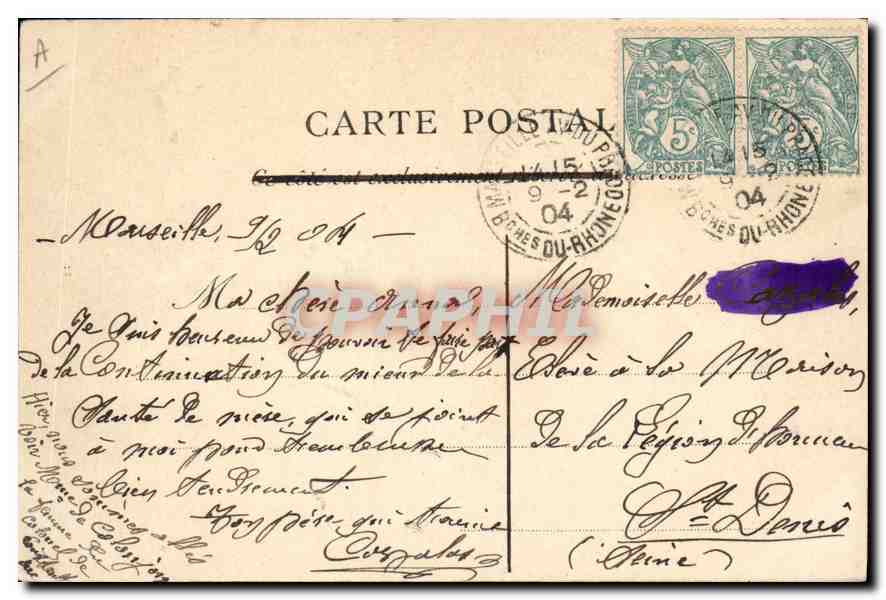 A
CARTE POSTAL
Ce côté est exclusivement
5c
POSTES
POSTES
14 15
9 - 2
04
BCHES DU-RHONE
9 - 2
04
BCHES DU-RHONE
CPAPHIL
- Marseille, 9/2 04 -
Ma chère Anna,
Je suis heureux de pouvoir te faire part
de la Continuation du mieux de la
Santé de mère, qui se joint
à moi pour t'embrasser
bien tendrement.
Ton père, qui t'aime
Hier, nous sommes allés
voir Mme de
la femme du
Colonel de
Mademoiselle
Elève à la Maison
De la Légion d'honneur
St. Denis
(Seine)